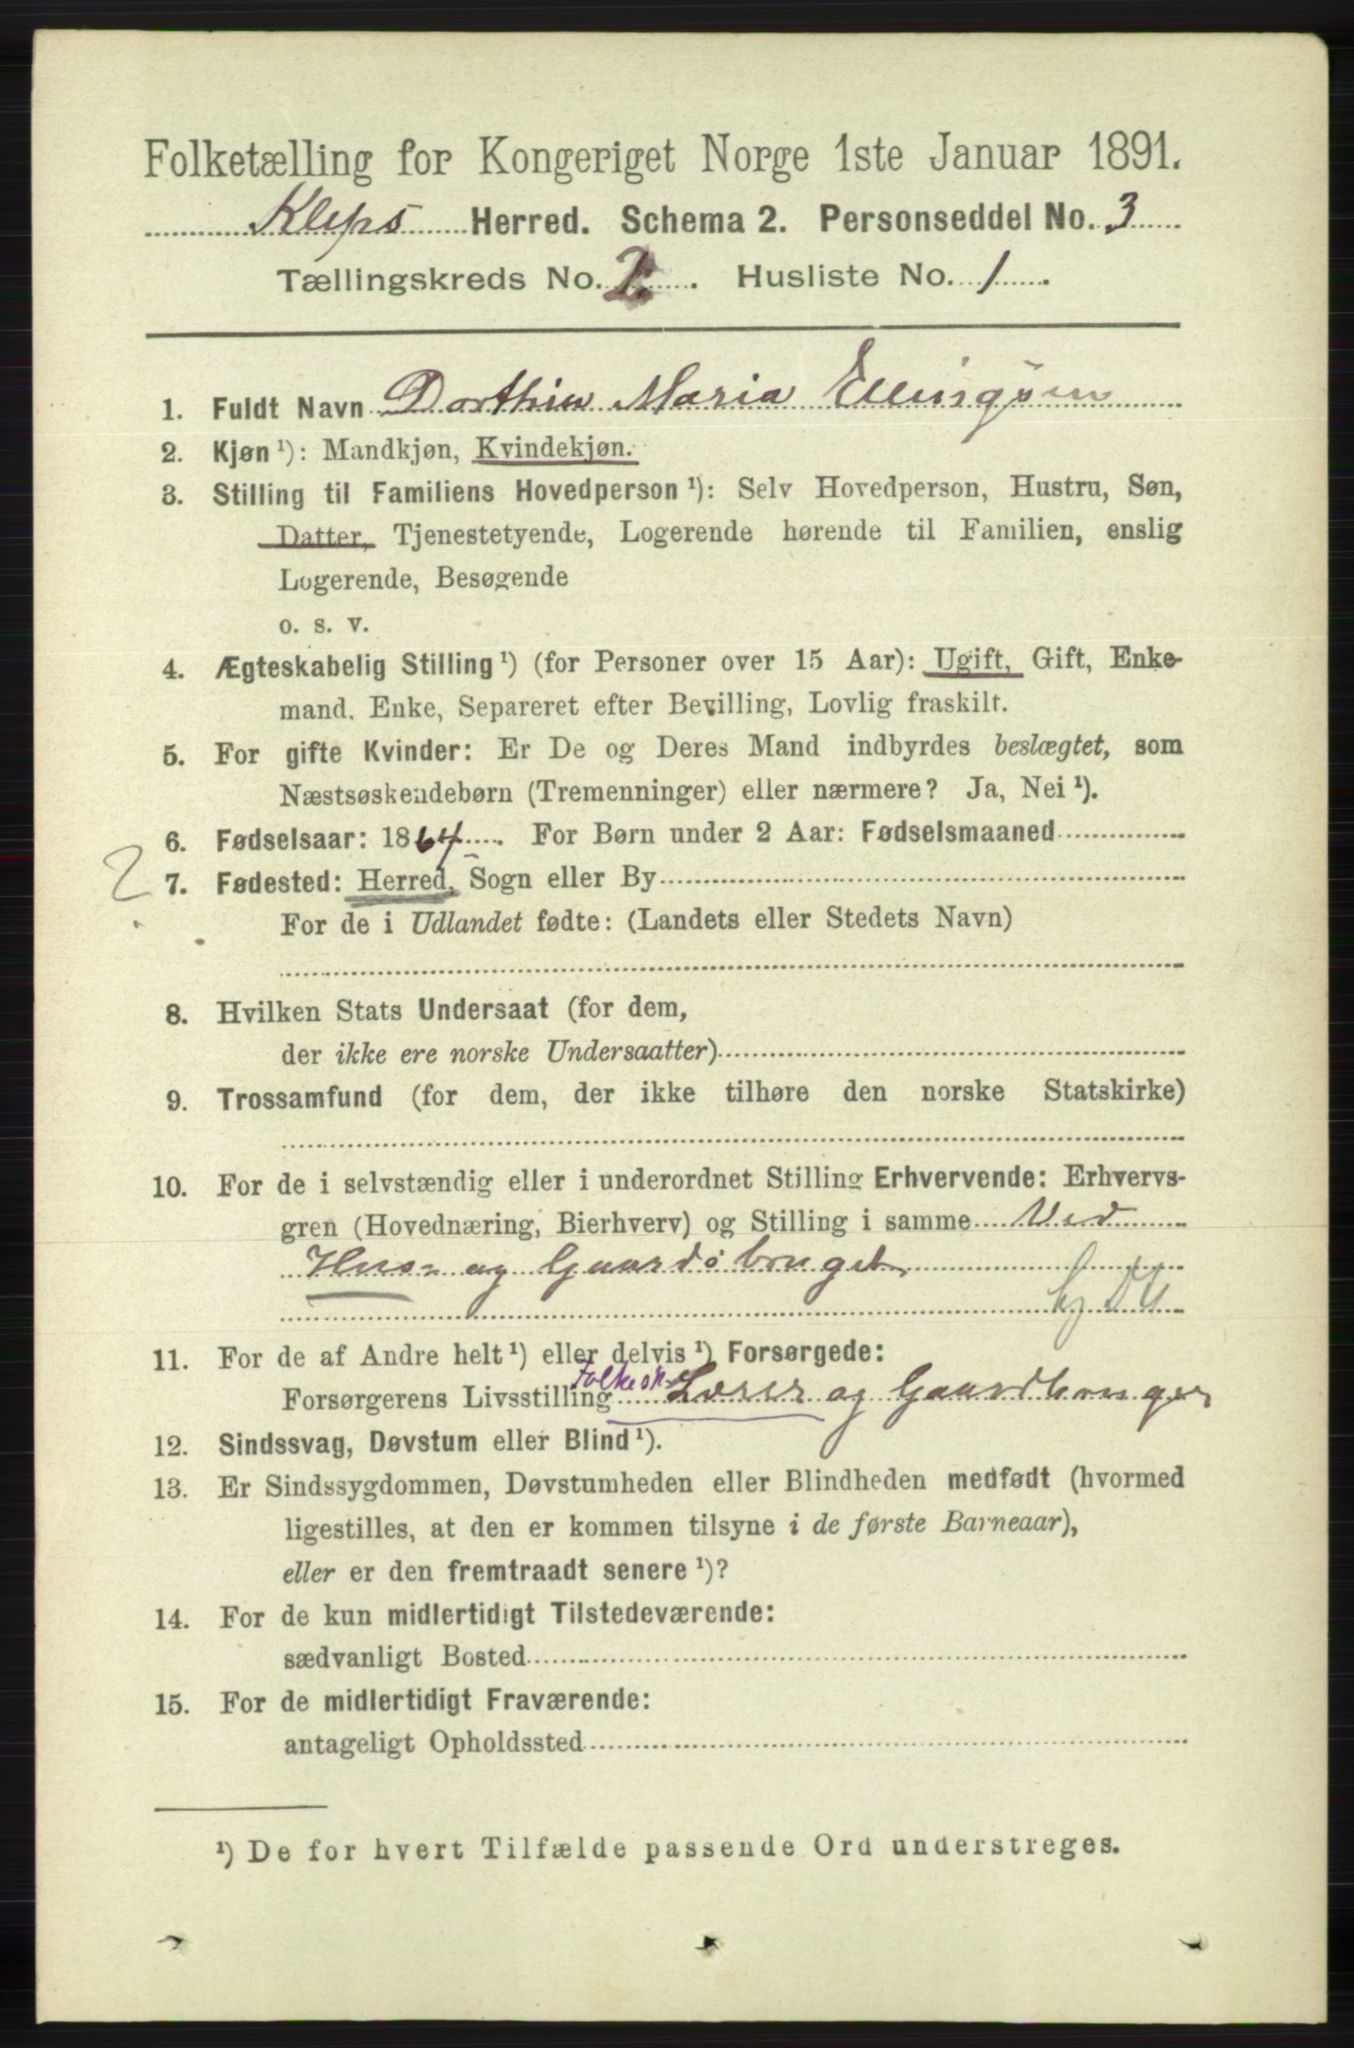 Folketælling for Kongeriget Norge 1ste Januar 1891.
Kleps Herred. Schema 2. Personseddel No. 3
Tællingskreds No. 2. Husliste No. 1.
1. Fuldt Navn Dorthin Maria Ellingsen
2. Kjøn ¹): Mandkjøn, Kvindekjøn.
3. Stilling til Familiens Hovedperson ¹): Selv Hovedperson, Hustru, Søn,
Datter, Tjenestetyende, Logerende hørende til Familien, enslig
Logerende, Besøgende
o. s. v.
4. Ægteskabelig Stilling ¹) (for Personer over 15 Aar): Ugift, Gift, Enke-
mand, Enke, Separeret efter Bevilling, Lovlig fraskilt.
5. For gifte Kvinder: Er De og Deres Mand indbyrdes beslægtet, som
Næstsøskendebørn (Tremenninger) eller nærmere? Ja, Nei ¹).
6. Fødselsaar: 1864. For Børn under 2 Aar: Fødselsmaaned
2 7. Fødested: Herred, Sogn eller By
For de i Udlandet fødte: (Landets eller Stedets Navn)
8. Hvilken Stats Undersaat (for dem,
der ikke ere norske Undersaatter)
9. Trossamfund (for dem, der ikke tilhøre den norske Statskirke)
10. For de i selvstændig eller i underordnet Stilling Erhvervende: Erhvervs-
gren (Hovednæring, Bierhverv) og Stilling i samme Ved
Hus- og Gaardsbruget
11. For de af Andre helt ¹) eller delvis ¹) Forsørgede:
Forsørgerens Livsstilling Folkesk. Lærer og Gaardbruger
12. Sindssvag, Døvstum eller Blind ¹).
13. Er Sindssygdommen, Døvstumheden eller Blindheden medfødt (hvormed
ligestilles, at den er kommen tilsyne i de første Barneaar),
eller er den fremtraadt senere ¹)?
14. For de kun midlertidigt Tilstedeværende:
sædvanligt Bosted
15. For de midlertidigt Fraværende:
antageligt Opholdssted
¹) De for hvert Tilfælde passende Ord understreges.